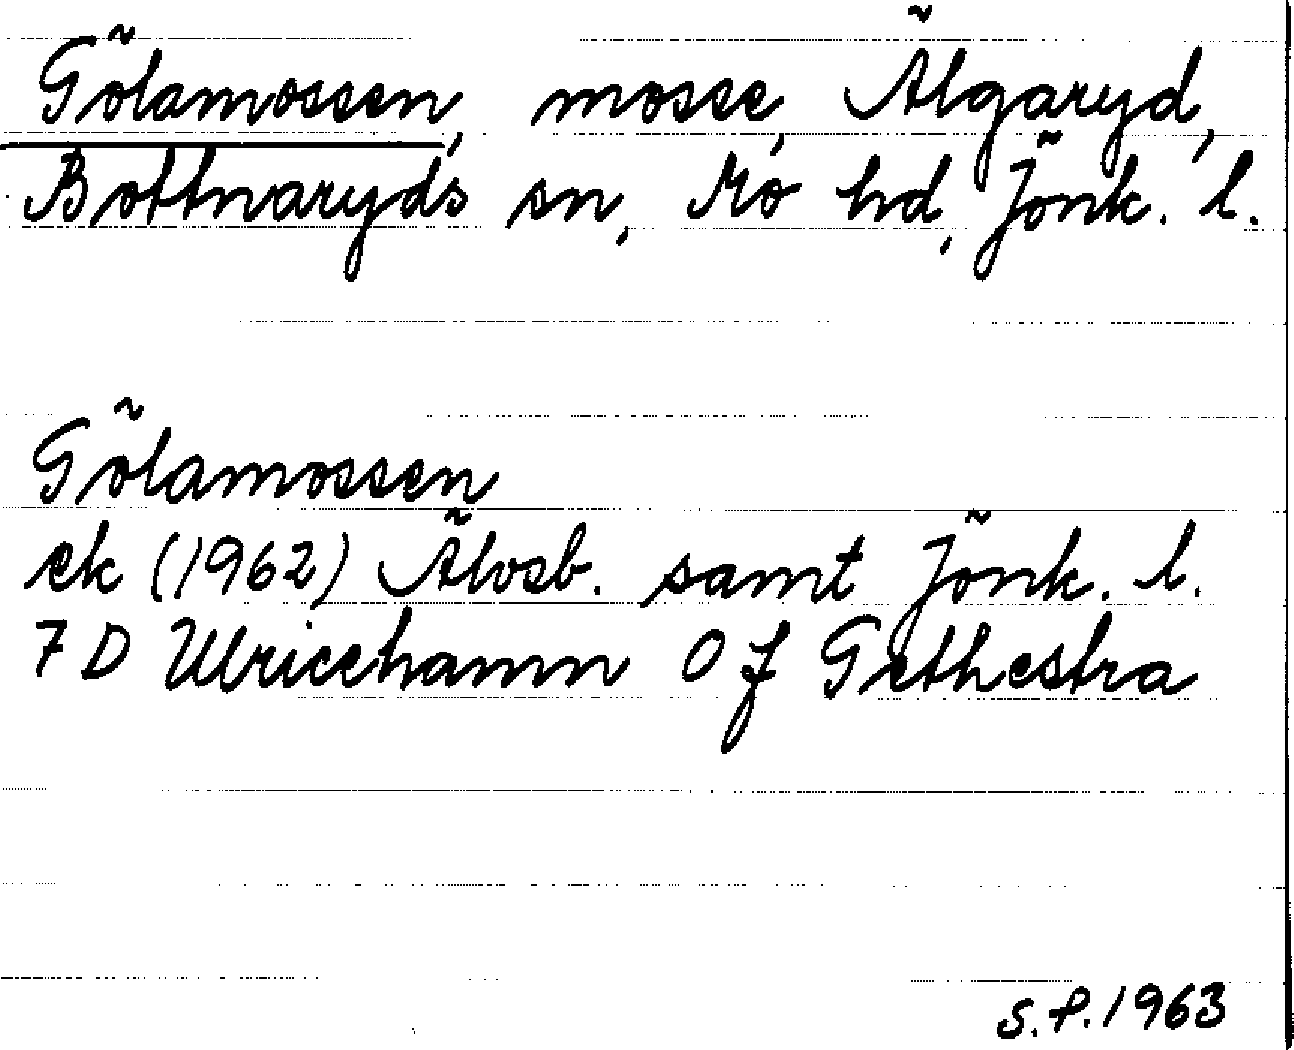 Gölamossen, mosse, Älgaryd,
Bottnaryds sn, Mo hd, Jönk. l.
Gölamossen
ek (1962) Älvsb. samt Jönk. l.
7 D Ulricehamn 0 f Grethestra
S.P. 1963